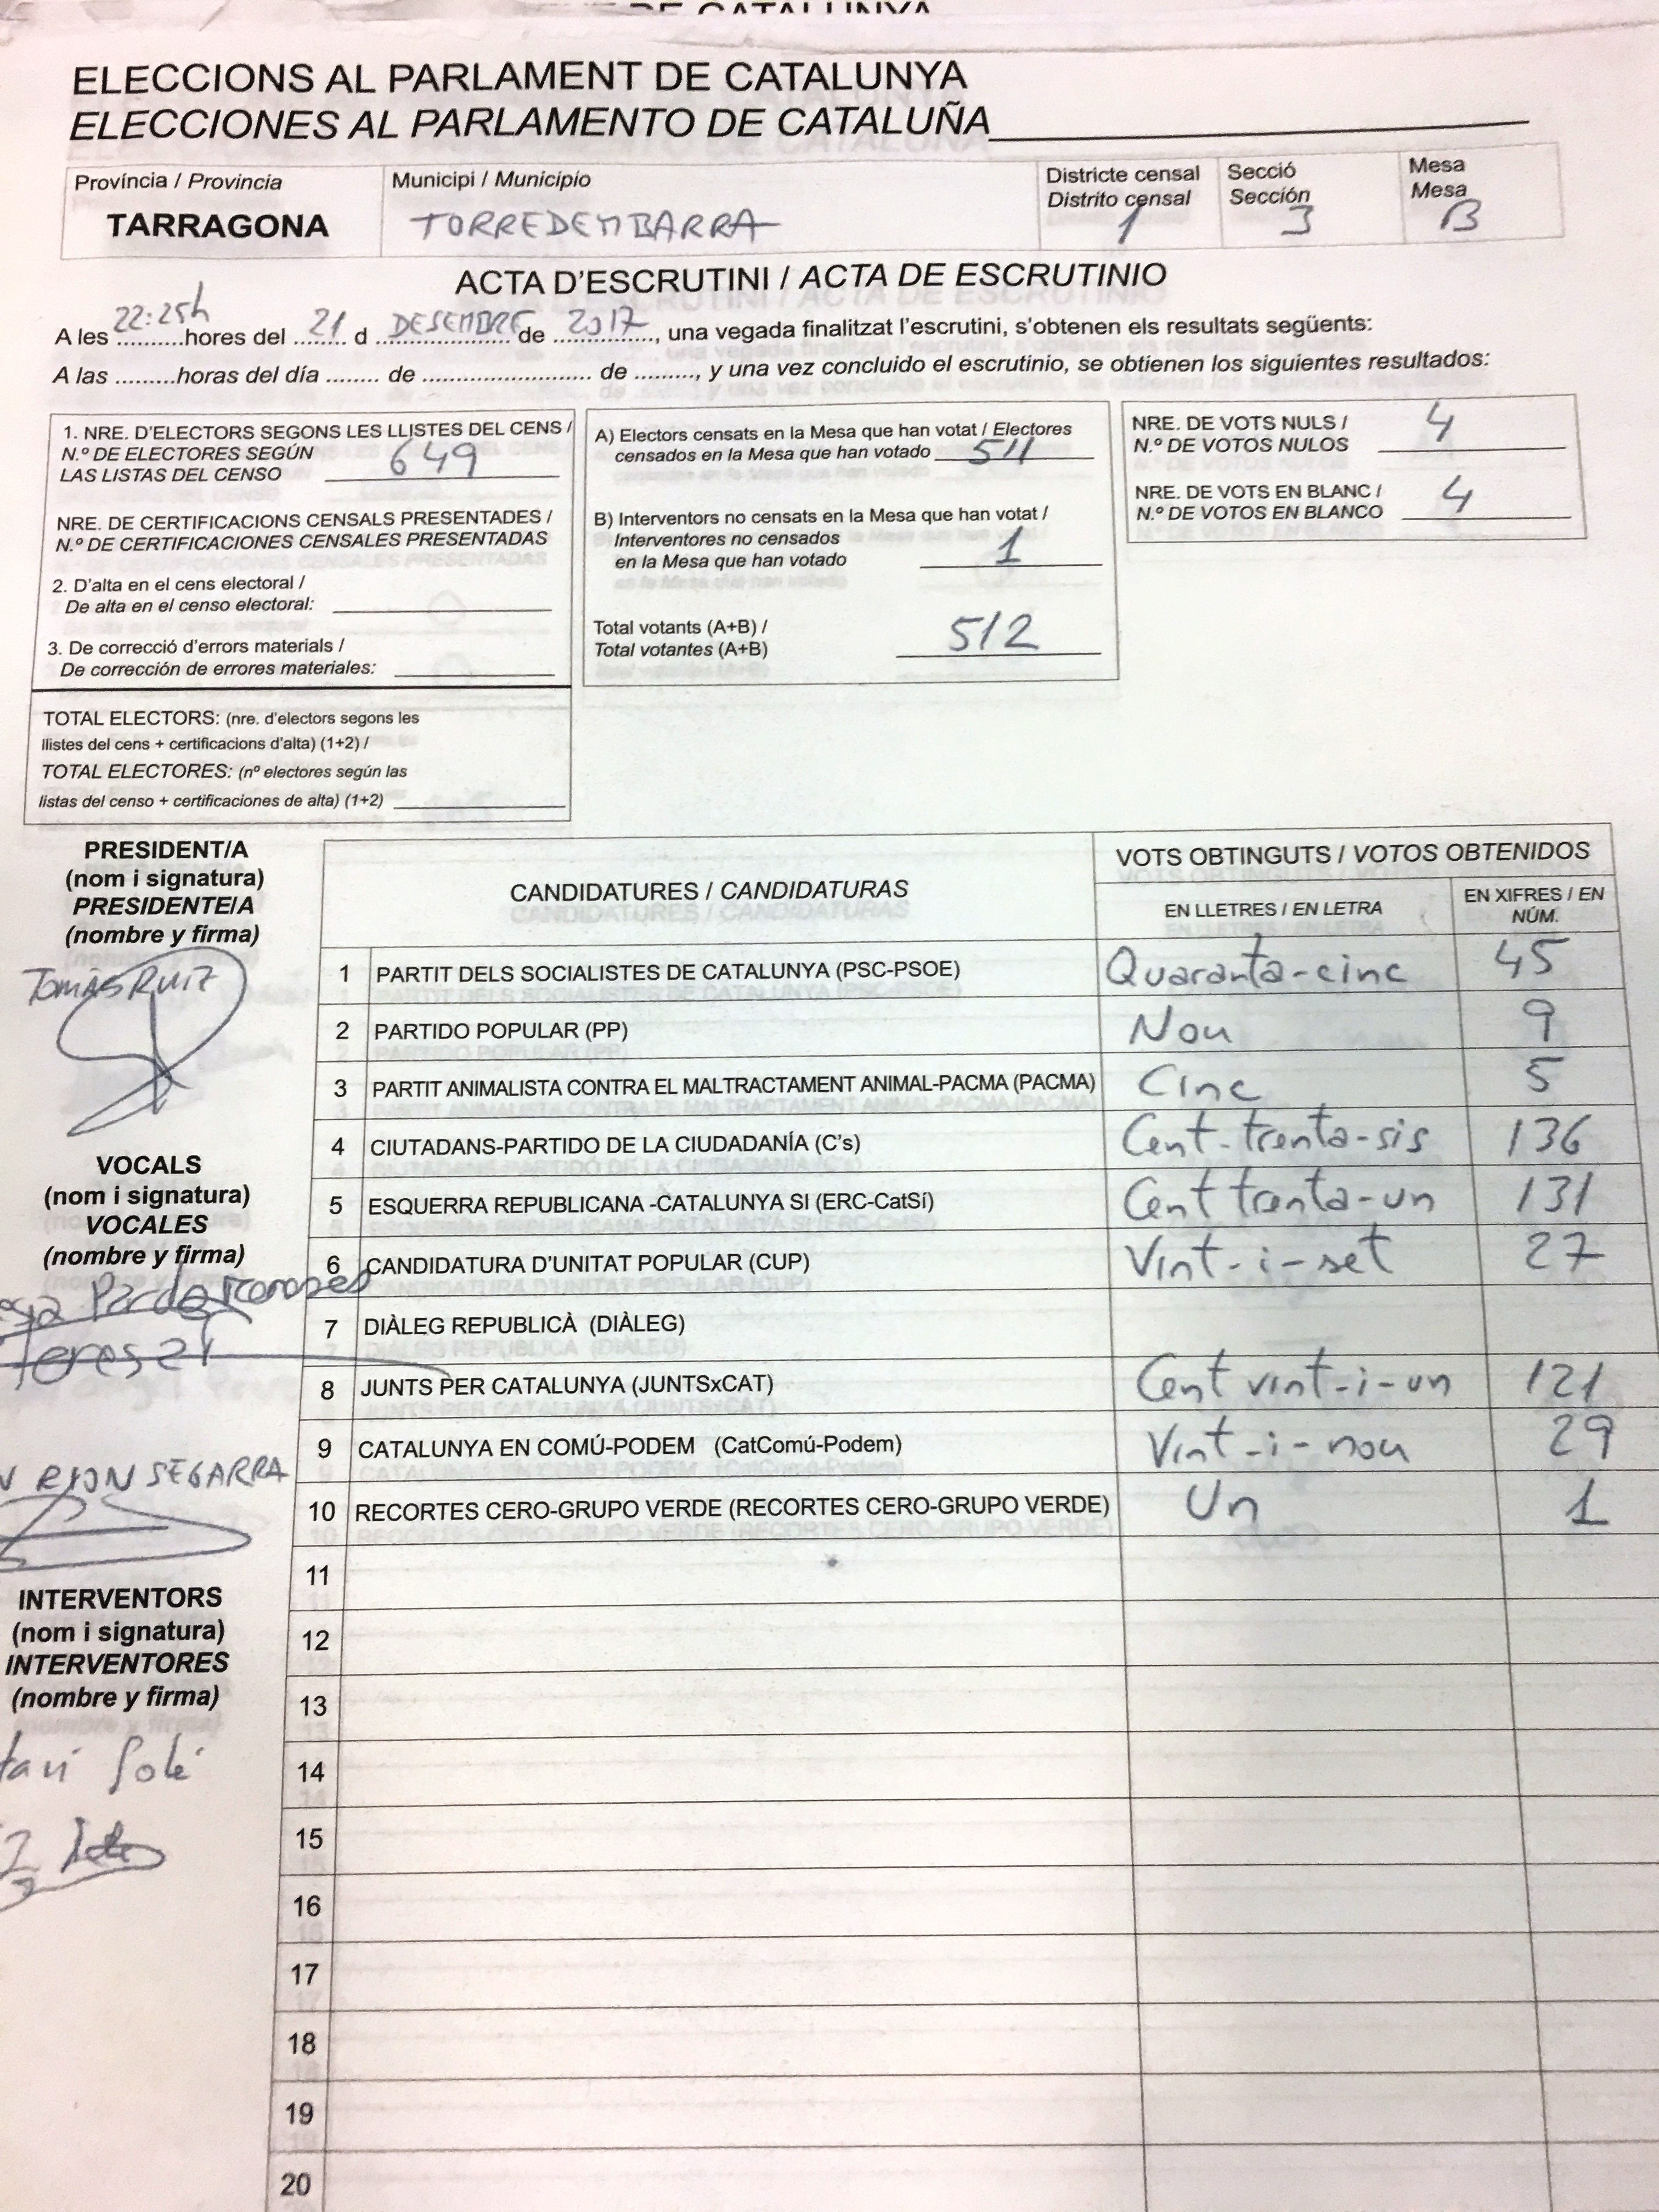 DE CATALUNYA
ELECCIONS AL PARLAMENT DE CATALUNYA
ELECCIONES AL PARLAMENTO DE CATALUÑA
Província / Provincia
TARRAGONA
Municipi / Municipio
TORREDEMBARRA
Districte censal
Distrito censal
1
Secció
Sección
3
Mesa
Mesa
B
ACTA D'ESCRUTINI / ACTA DE ESCRUTINIO
A les 22:25h hores del 21 d DESEMBRE de 2017, una vegada finalitzat l'escrutini, s'obtenen els resultats següents:
A las .........horas del día ........ de .......................... de ........., y una vez concluido el escrutinio, se obtienen los siguientes resultados:
1. NRE. D'ELECTORS SEGONS LES LLISTES DEL CENS /
N.º DE ELECTORES SEGÚN
LAS LISTAS DEL CENSO 649
NRE. DE CERTIFICACIONS CENSALS PRESENTADES /
N.º DE CERTIFICACIONES CENSALES PRESENTADAS
2. D'alta en el cens electoral /
De alta en el censo electoral:
3. De correcció d'errors materials /
De corrección de errores materiales:
TOTAL ELECTORS: (nre. d'electors segons les
llistes del cens + certificacions d'alta) (1+2) /
TOTAL ELECTORES: (nº electores según las
listas del censo + certificaciones de alta) (1+2)
A) Electors censats en la Mesa que han votat / Electores
censados en la Mesa que han votado 511
B) Interventors no censats en la Mesa que han votat /
Interventores no censados
en la Mesa que han votado 1
Total votants (A+B) /
Total votantes (A+B) 512
NRE. DE VOTS NULS /
N.º DE VOTOS NULOS 4
NRE. DE VOTS EN BLANC /
N.º DE VOTOS EN BLANCO 4
PRESIDENT/A
(nom i signatura)
PRESIDENTE/A
(nombre y firma)
TOMÁS RUIZ
VOCALS
(nom i signatura)
VOCALES
(nombre y firma)
Teresa
RION SEGARRA
INTERVENTORS
(nom i signatura)
INTERVENTORES
(nombre y firma)
Solé
CANDIDATURES / CANDIDATURAS
VOTS OBTINGUTS / VOTOS OBTENIDOS
EN LLETRES / EN LETRA
EN XIFRES / EN
NÚM.
1 PARTIT DELS SOCIALISTES DE CATALUNYA (PSC-PSOE) Quaranta-cinc 45
2 PARTIDO POPULAR (PP) Nou 9
3 PARTIT ANIMALISTA CONTRA EL MALTRACTAMENT ANIMAL-PACMA (PACMA) Cinc 5
4 CIUTADANS-PARTIDO DE LA CIUDADANÍA (C's) Cent-trenta-sis 136
5 ESQUERRA REPUBLICANA -CATALUNYA SI (ERC-CatSí) Cent trenta-un 131
6 CANDIDATURA D'UNITAT POPULAR (CUP) Vint-i-set 27
7 DIÀLEG REPUBLICÀ (DIÀLEG)
8 JUNTS PER CATALUNYA (JUNTSxCAT) Cent vint-i-un 121
9 CATALUNYA EN COMÚ-PODEM (CatComú-Podem) Vint-i-nou 29
10 RECORTES CERO-GRUPO VERDE (RECORTES CERO-GRUPO VERDE) Un 1
11
12
13
14
15
16
17
18
19
20